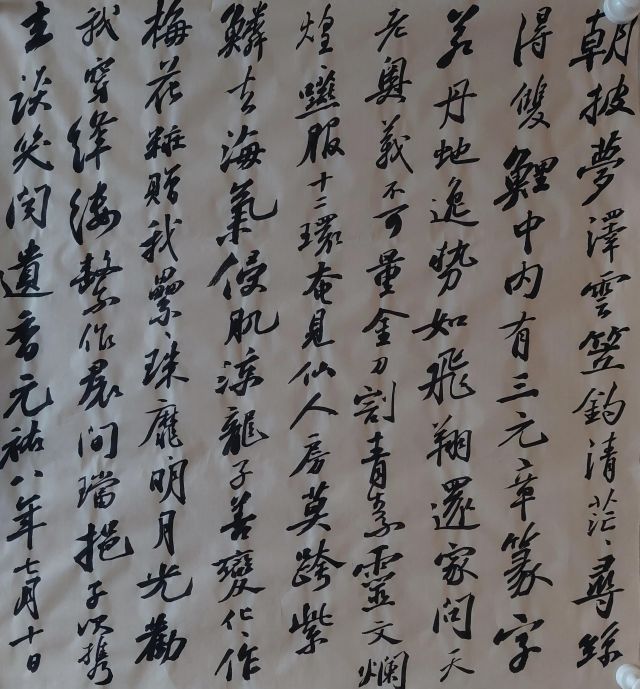 朝披夢澤雲笠釣清茫〻尋絲
得雙鯉中內有三元〻章篆字
若丹虵逸勢如飛翔還家問天
老奧義不可量金刀割青素靈文爛
煌〻嚥服十二環奄見仙人房莫跨紫
鱗去海氣侵肌涼龍子善變化〻作
梅花粧贈我纍〻珠靡明月光勸
我穿絳縷繫作裙間璫挹子以攜
去談笑聞遺香元祐八年七月十日